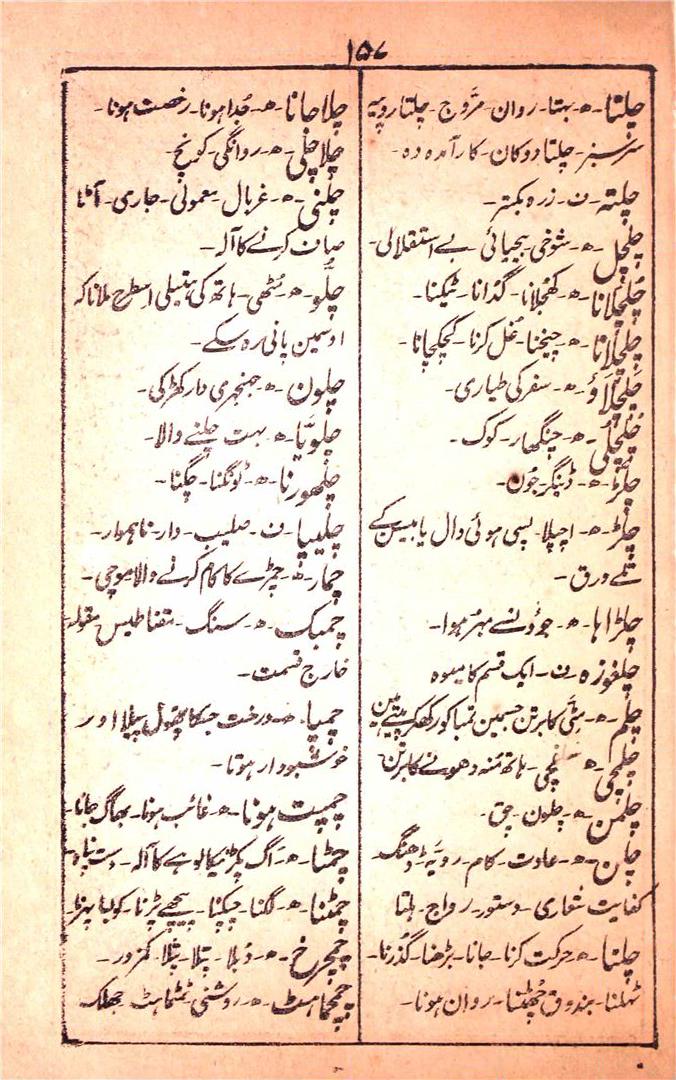 ۱۵۷
چلتا۔ ھ۔ بہتا۔ روان۔ مروّج۔ چلتا روپیہ
سرسبز۔ چلتا دوکان۔ کارآمدہ دہ۔
چلتہ۔ ف۔ زرہ بکتر۔
چلچل۔ ھ۔ شوخی بیحیائی بے استقلالی۔
چُلچُلانا۔ ھ۔ کھُجلانا۔ گدانا۔ ٹیکنا۔
چِلچِلانا۔ ھ۔ چیخنا۔ غُل کرنا۔ کچکچانا۔
چلچلاؤ۔ ھ۔ سفر کی طیاری۔
چلچلی۔ ھ۔ چنگھار۔ کوک۔
چلڑ۔ ھ۔ ڈینگر جُون۔
چلڑ۔ ھ۔ اچپلا۔ پسی ہوئی دال یا بیسن کے
تلے ورق۔
چلڑاہا۔ ھ۔ جوؤنسے بھرا ہوا۔
چلغوزہ۔ ف۔ ایک قسم کا میوہ
چلم۔ ھ۔ مٹی کا برتن جسمین تمباکو رکھکر پیتے ہین
چلمچی۔ ھ۔ ہاتھ منہ دھونے کا برتن
چلمن۔ ھ۔ چلون۔ چق۔
چلن۔ ھ۔ عادت۔ کام۔ رویّہ۔ ڈھنگ۔
کفایت شعاری۔ دستور۔ رواج۔ ہلنا
چلنا۔ ھ۔ حرکت کرنا۔ جانا۔ بڑھنا۔ گذرنا۔
ٹہلنا۔ بندوق چھٹنا۔ روان ہونا۔
چلا جانا۔ ھ۔ جُدا ہونا۔ رخصت ہونا۔
چلا چلی۔ ھ۔ روانگی۔ کوچ۔
چلنی۔ ھ۔ غربال۔ معمولی۔ جاری۔ آٹا
صاف کرنے کا آلہ۔
چلّو۔ ھ۔ مُٹھی۔ ہاتھ کی ہتیلی اسطرح ملانا کہ
اوسمین پانی رہ سکے۔
چلون۔ ھ۔ جھنجھری دار کھڑکی۔
چلویّا۔ ھ۔ بہت چلنے والا۔
چلھورنا۔ ھ۔ ٹونگنا۔ چگنا۔
چلیپا۔ ف۔ صلیب۔ دار۔ ناہموار۔
چمار۔ ھ۔ چمڑے کا کام کرنے والا موچی۔
چمبک۔ ھ۔ سنگ۔ مقناطیس مقولہ۔
خارج قسمت۔
چمپا۔ ھ۔ درخت جسکا پھول پیلا اور
خوشبودار ہوتا۔
چمپت ہونا۔ ھ۔ غائب ہونا۔ بھاگ جانا۔
چمٹا۔ ھ۔ آگ پکڑنیکا لوہے کا آلہ۔ دست پناہ
چمٹنا۔ ھ۔ لگنا۔ چپکنا۔ پیچھے پڑنا۔
چمچرخ۔ ھ۔ دُبلا۔ پتلا۔ کمزور۔
چمچماہٹ۔ ھ۔ روشنی ٹمٹماہٹ۔ جھلک